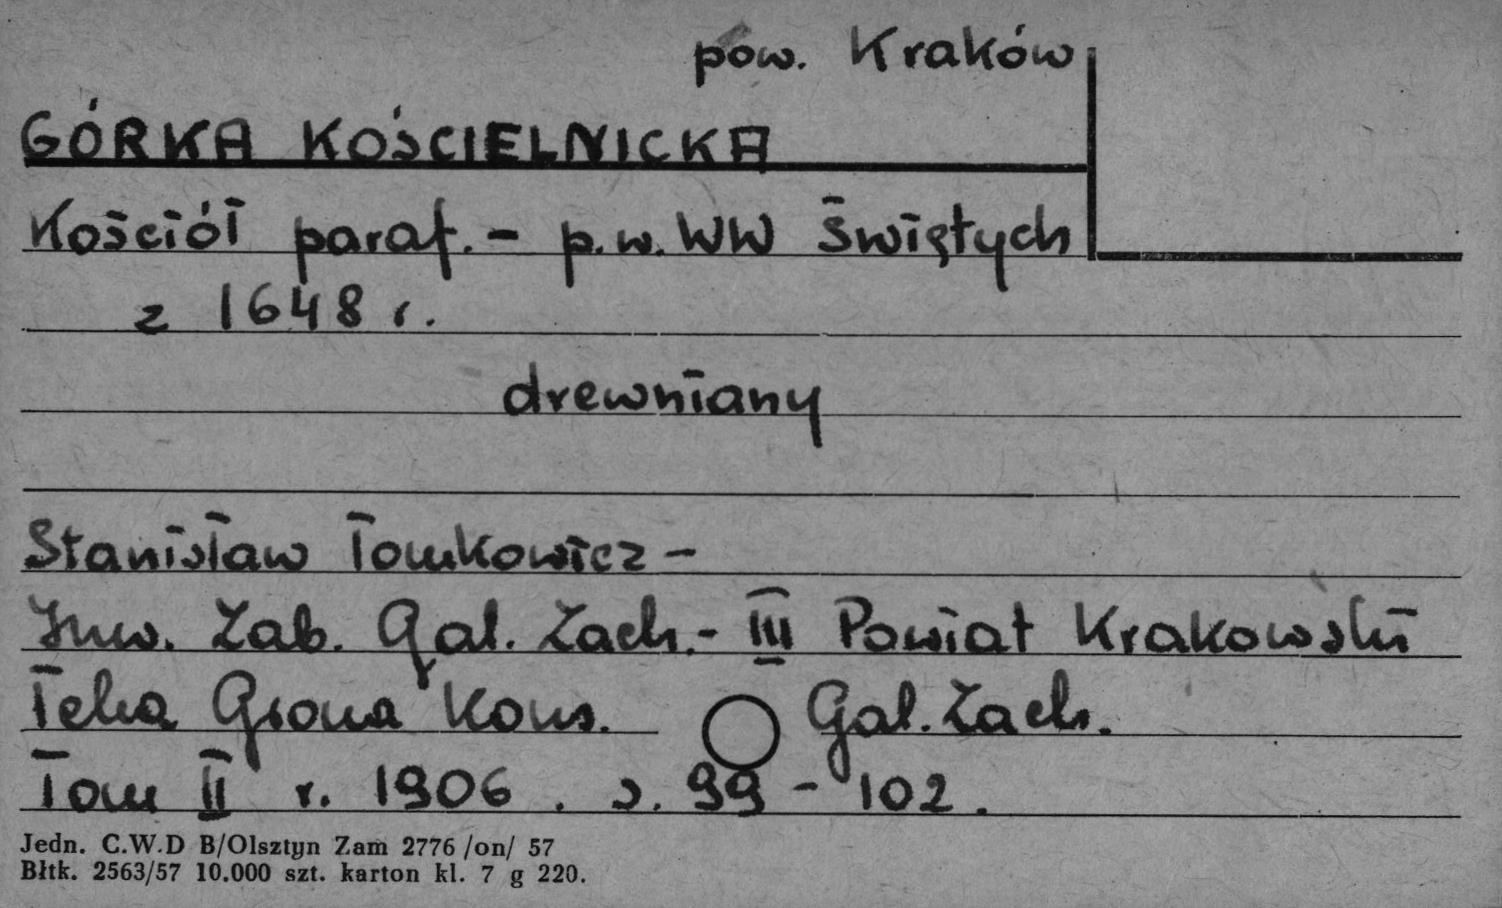 pow. Kraków
GÓRKA KOŚCIELNICKA
Kościół paraf. - p.w. WW Świętych
z 1648 r.
drewniany
Stanisław Tomkowicz -
Inw. Zab. Gal. Zach. - III Powiat Krakowski
Teka Grona Kons. Gal. Zach.
Tom II r. 1906. s. 99 - 102.
Jedn. C.W.D B/Olsztyn Zam 2776 /on/ 57
Błtk. 2563/57 10.000 szt. karton kl. 7 g 220.